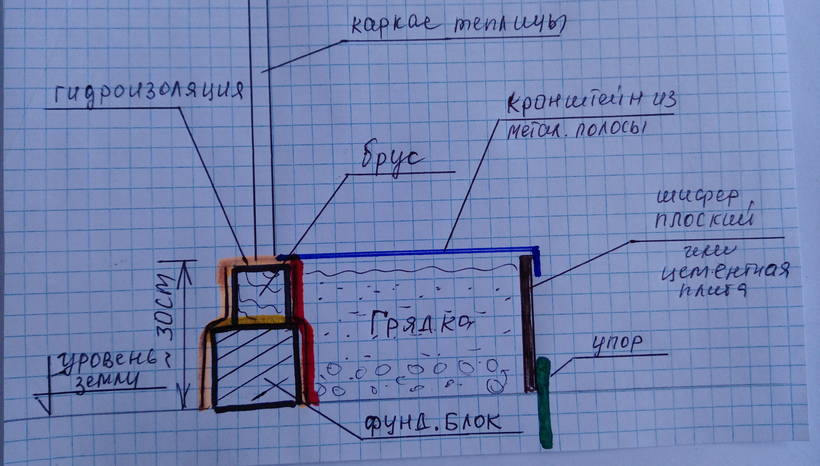 каркас теплицы
гидроизоляция
кронштейн из
метал. полосы
брус
шифер,
плоский
или
цементная
плита
30см
Грядка
упор
уровень
земли
фунд. блок